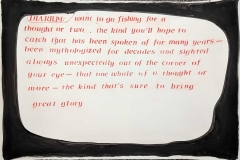 want to go fishing for a
thought or two, the kind you'll hope to
catch that has been spoken of for many years—
been mythologized for decades and sighted
always unexpectedly out of the corner of
your eye— that one whole of a thought or
more— the kind that's sure to bring
great glory